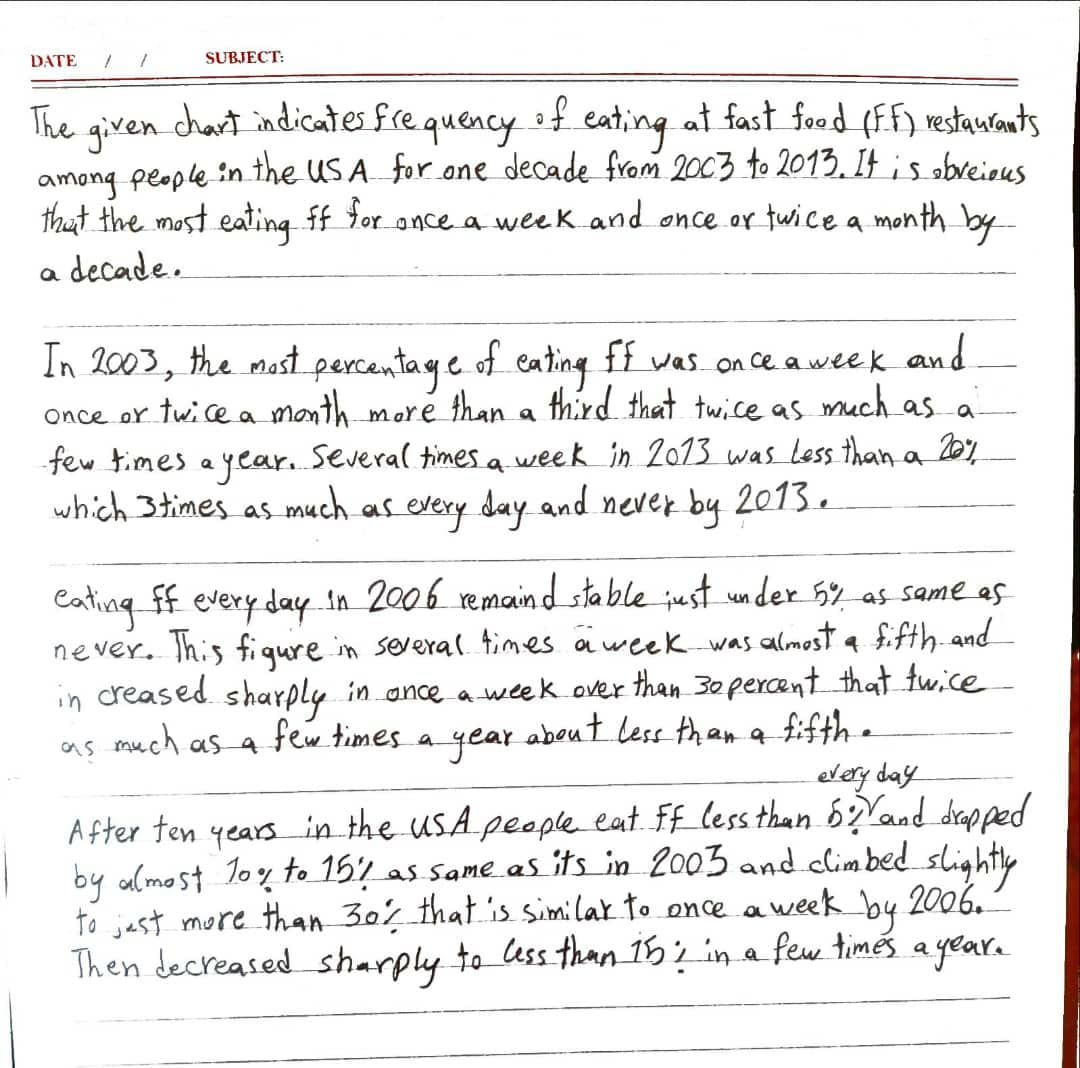 DATE / / SUBJECT:
The given chart indicates frequency of eating at fast food (FF) restaurants
among people in the USA for one decade from 2003 to 2013. It is obveious
that the most eating ff for once a week and once or twice a month by
a decade.
In 2003, the most percentage of eating ff was once a week and
once or twice a month more than a third that twice as much as a
few times a year. Several times a week in 2013 was less than a 20%
which 3 times as much as every day and never by 2013.
eating ff every day in 2006 remaind stable just under 5% as same as
never. This figure in several times a week was almost a fifth and
increased sharply in once a week over than 30 percent that twice
as much as a few times a year about less than a fifth.
every day
After ten years in the USA people eat FF less than 5% and dropped
by almost 10% to 15% as same as its in 2003 and climbed slightly
to just more than 30% that is similar to once a week by 2006.
Then decreased sharply to less than 15% in a few times a year.